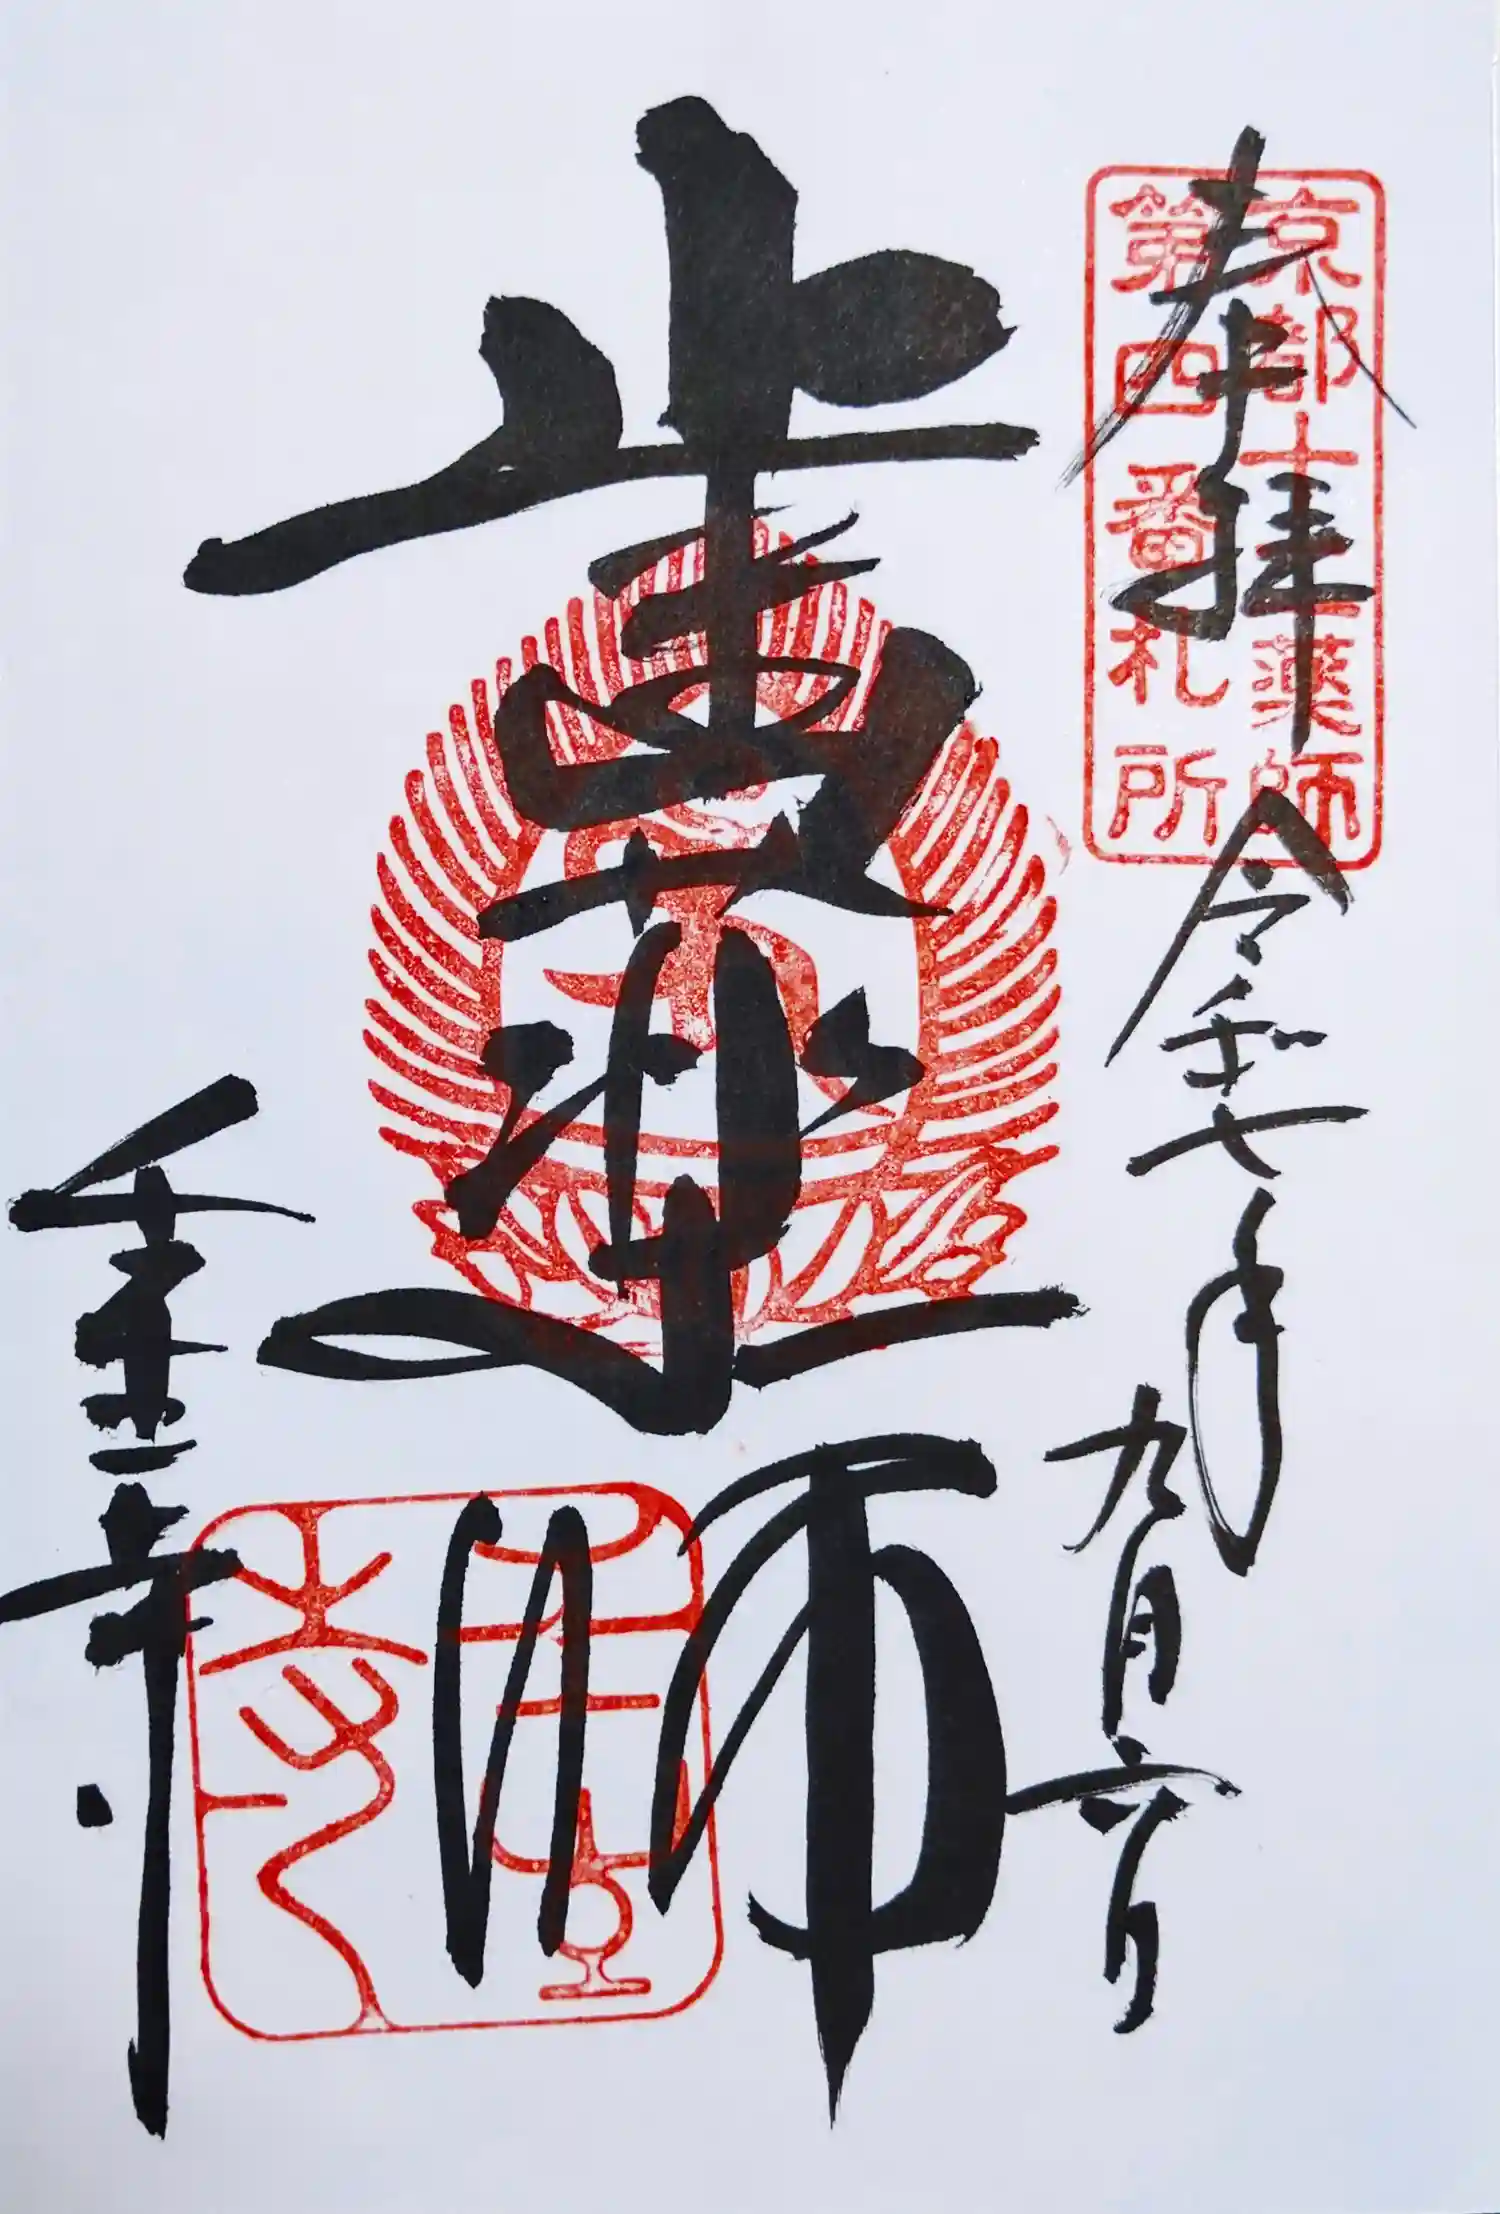 奉拝
京都十二薬師
第四番札所
令和七年九月六日
歯薬師
壬生寺